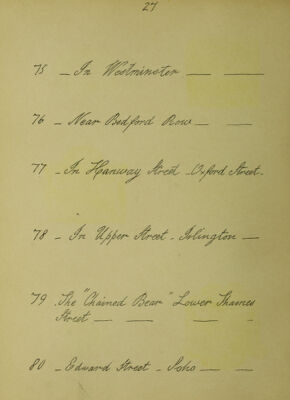 27
75 - In Westminster — —
76 - Near Bedford Row — —
77 - In Hanway Street - Oxford Street -
78 - In Upper Street - Islington —
79 The "Chained Bear" Lower Thames
Street — — — —
80 - Edward Street - Soho — —